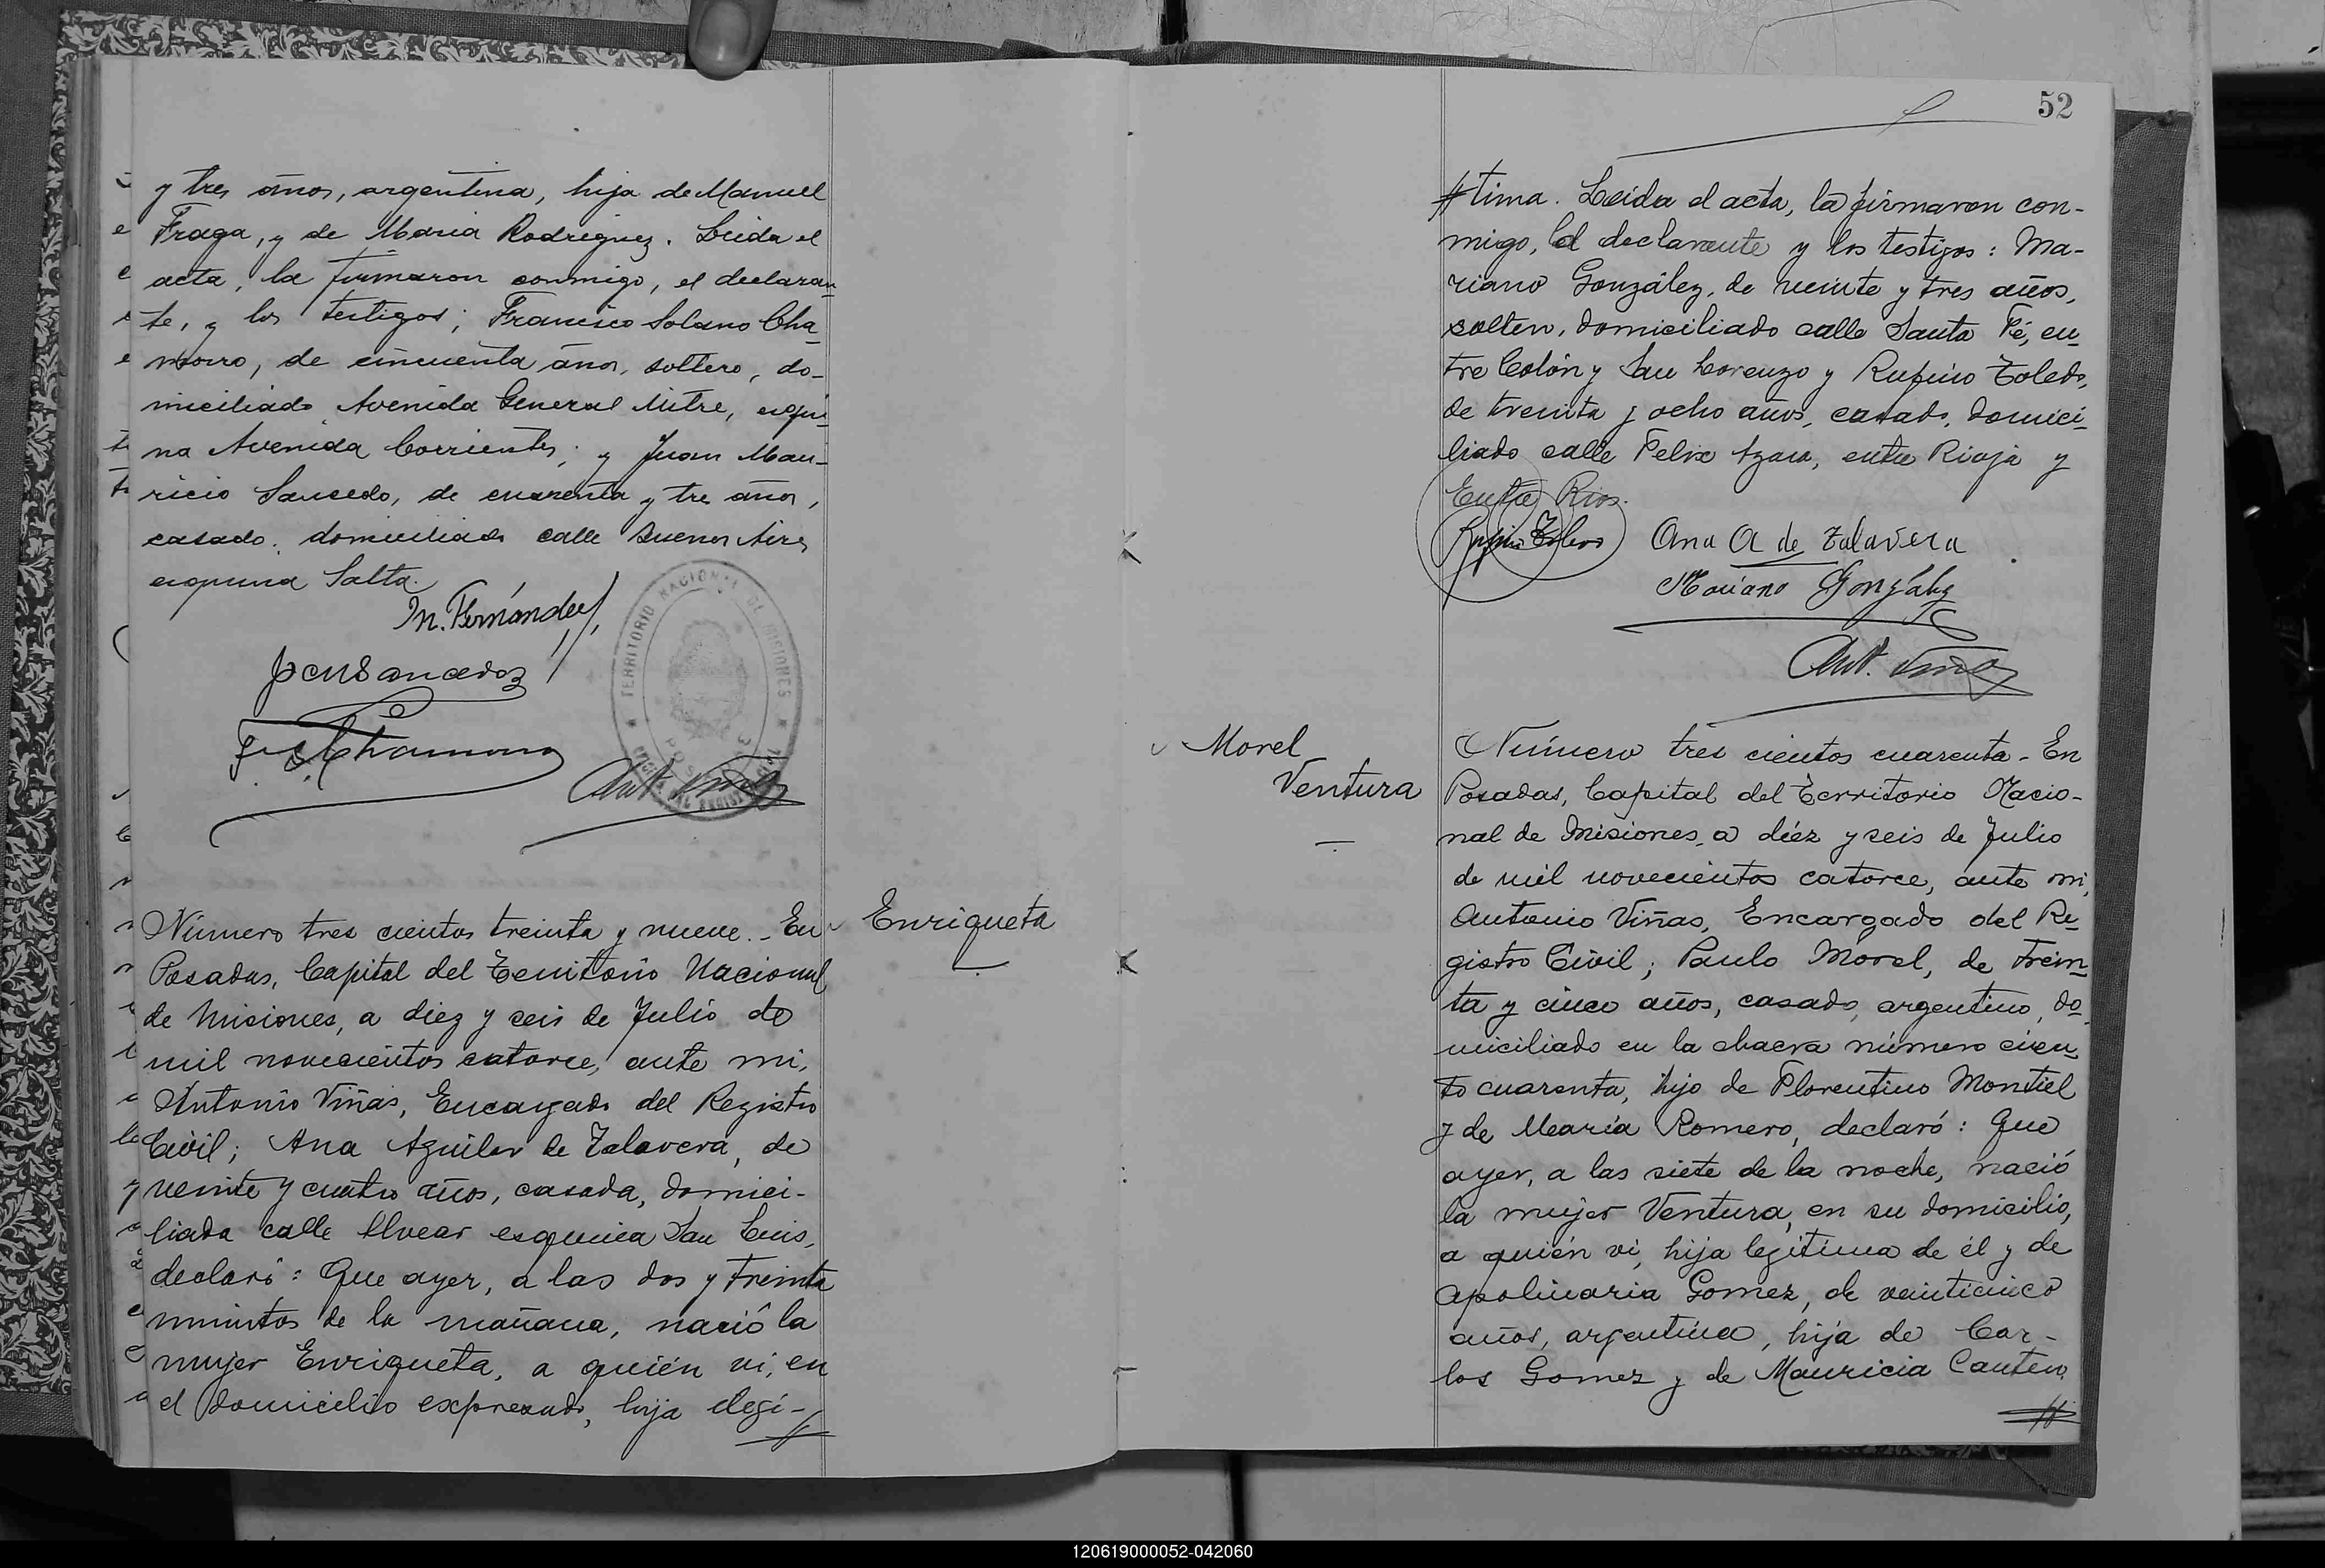 y tres años, argentina, hija de Manuel
Fraga, y de Maria Rodriguez. Leida el
acta, la firmaron conmigo, el declaran-
te, y los testigos; Francisco Solano Cha-
morro, de cincuenta años, soltero, do-
miciliado Avenida General Mitre, esqui-
na Avenida Corrientes; y Juan Mau-
ricio Saucedo, de cuarenta y tres años,
casado, domiciliado calle Buenos Aires
esquina Salta.
M. Fernández
TERRITORIO NACIONAL DE MISIONES
POSADAS
Ant. Viñas
Número tres cientos treinta y nueve.- En
Posadas, Capital del Territorio Nacional
de Misiones, a diez y seis de Julio de
mil novecientos catorce, ante mi,
Antonio Viñas, Encargado del Registro
Civil; Ana Aguilar de Talavera, de
veinte y cuatro años, casada, domici-
liada calle Alvear esquina San Luis,
declaró: Que ayer, a las dos y treinta
minutos de la mañana, nació la
mujer Enriqueta, a quién vi, en
el domicilio expresado, hija ilegi-
Enriqueta
52
tima. Leida el acta, la firmaron con-
migo, la declarante y los testigos: Ma-
riano González, de veinte y tres años,
soltero, domiciliado calle Santa Fé, en-
tre Colón y San Lorenzo y Rufino Toledo,
de treinta y ocho años, casado, domici-
liado calle Felix Azara, entre Rioja y
Entre Rios.
Rufino Toledo
Ana A de Talavera
Mariano González
Ant. Viñas
Morel
Ventura
Número tres cientos cuarenta - En
Posadas, Capital del Territorio Nacio-
nal de Misiones, a diéz y seis de Julio
de mil novecientos catorce, ante mi,
Antonio Viñas, Encargado del Re-
gistro Civil; Paulo Morel, de trein-
ta y cinco años, casado, argentino, do-
miciliado en la chacra número cien-
to cuarenta, hijo de Florentino Montiel
y de María Romero, declaró: Que
ayer, a las siete de la noche, nació
la mujer Ventura, en su domicilio,
a quién vi, hija legítima de él y de
Apolinaria Gomez, de veinticinco
años, argentina, hija de Car-
los Gomez y de Mauricia Cantero
120619000052-042060